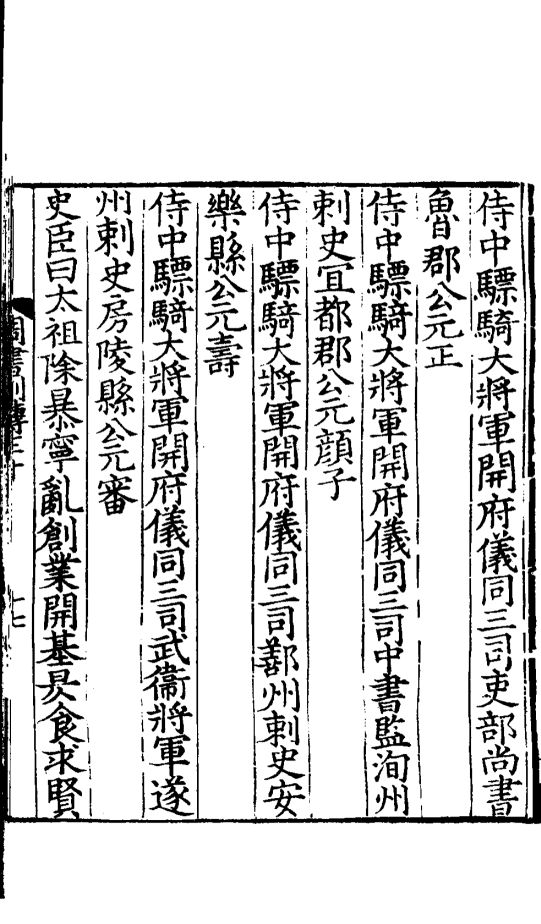 侍中驃騎大將軍開府儀同三司吏部尚書
魯郡公元正
侍中驃騎大將軍開府儀同三司中書監洵州
刺史宜都郡公元顔子
侍中驃騎大將軍開府儀同三司鄯州刺史安
樂縣公元壽
侍中驃騎大將軍開府儀同三司武衞將軍遂
州刺史房陵縣公元審
史臣曰太祖除暴寧亂創業開基昃食求賢
周書列傳三十